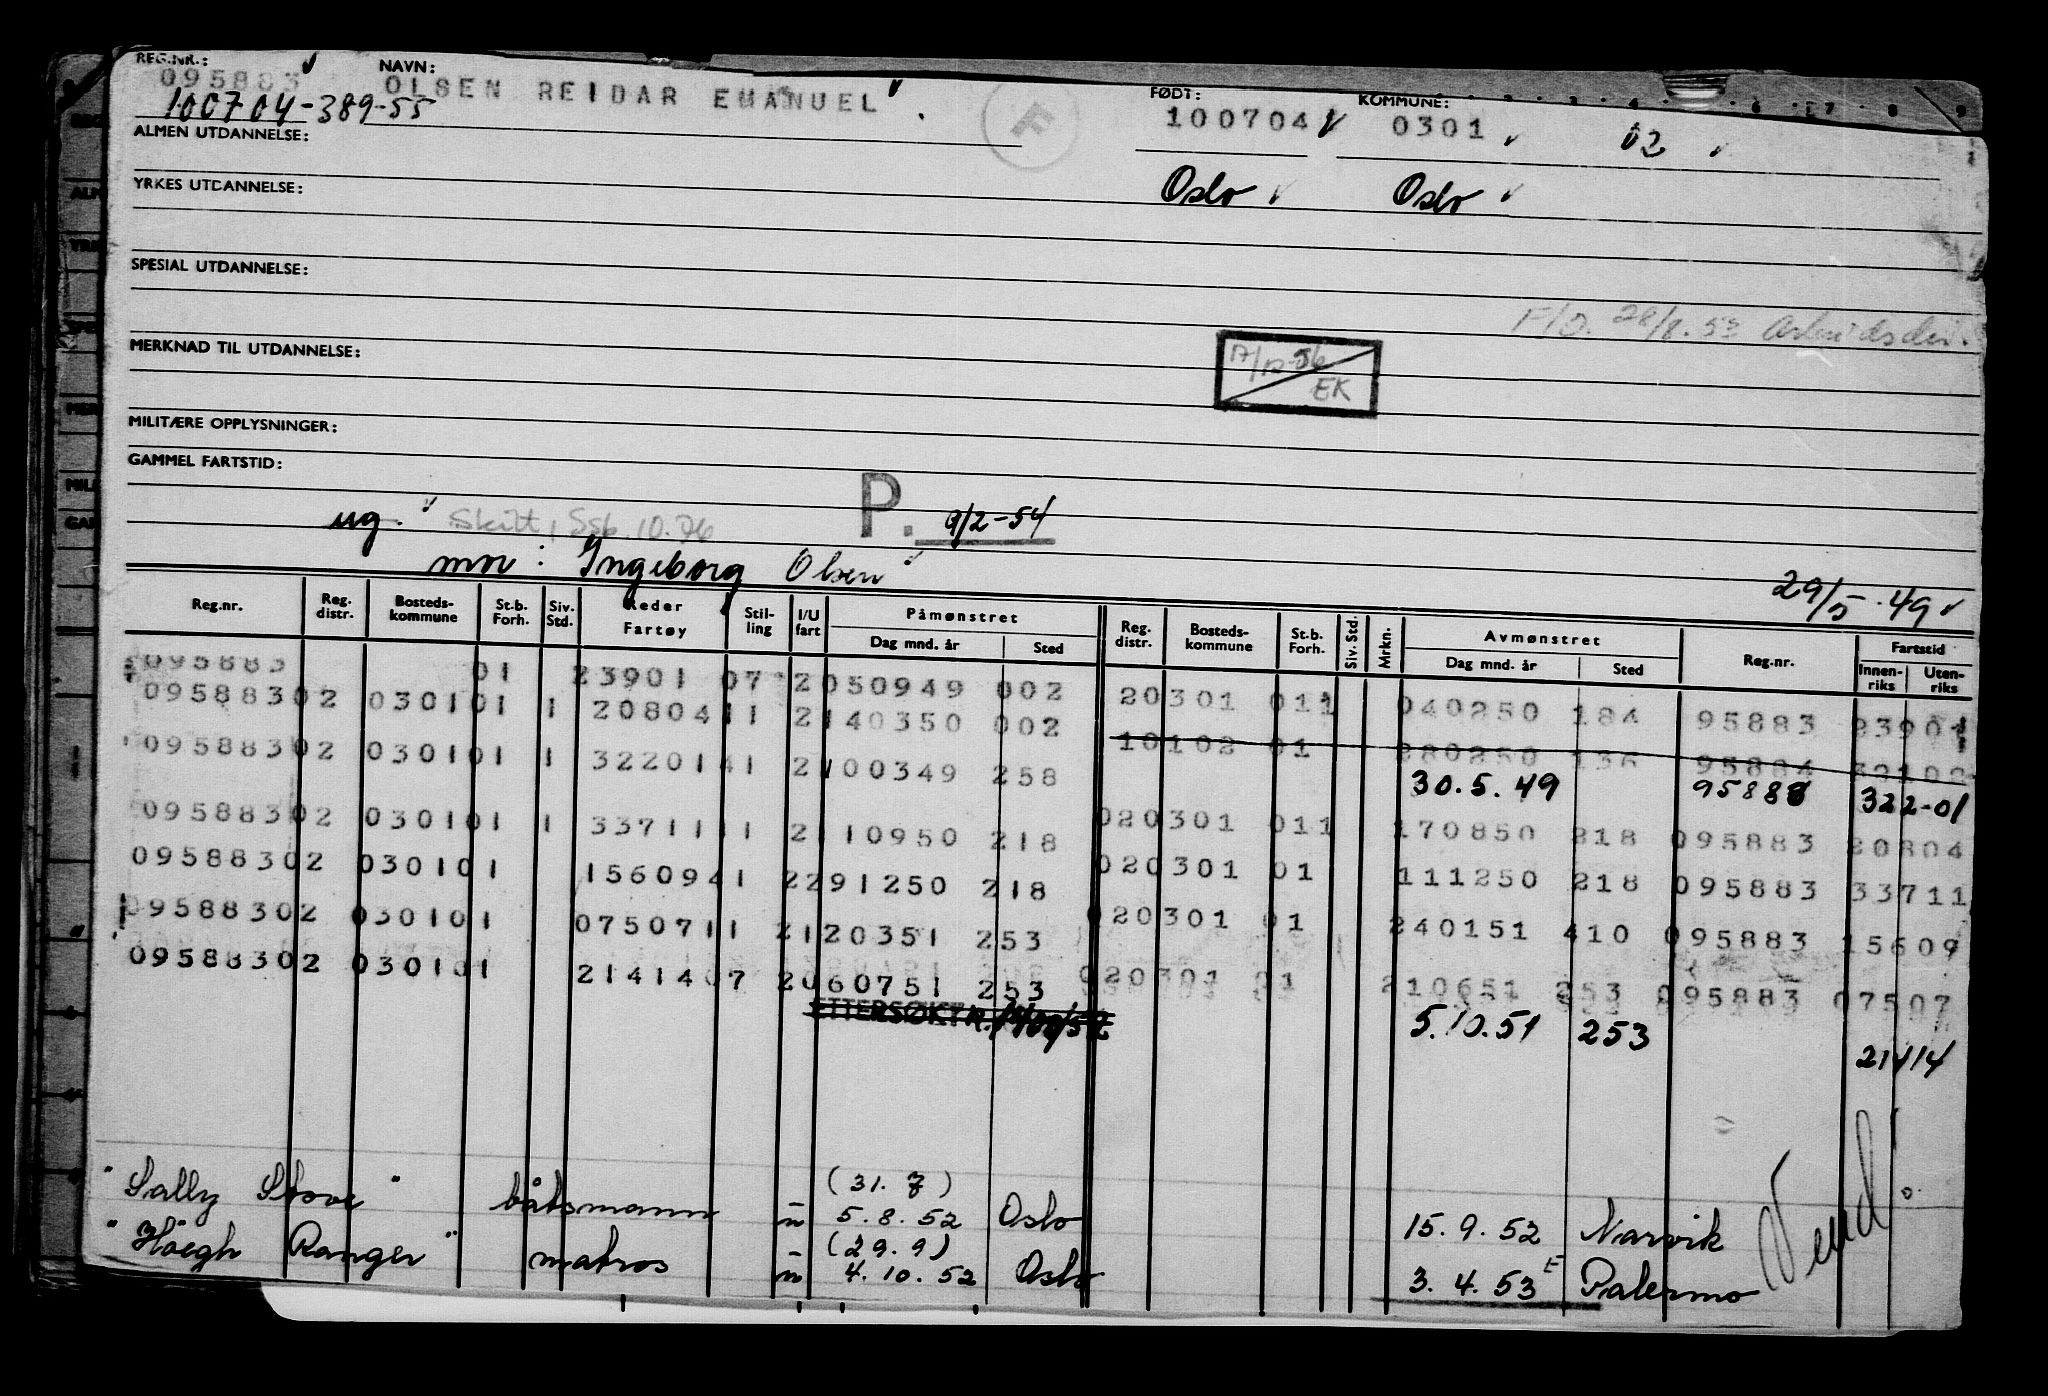 REG.NR.: NAVN: FØDT: KOMMUNE:
095883 OLSEN REIDAR EMANUEL 100704 0301 02
100704-389-55
ALMEN UTDANNELSE:
Oslo Oslo
YRKES UTDANNELSE:
SPESIAL UTDANNELSE:
F/O. 28/8.53
MERKNAD TIL UTDANNELSE:
17/12-56
EK
MILITÆRE OPPLYSNINGER:
GAMMEL FARTSTID:
ug. P. 9/2-54
mor: Ingeborg Olsen
29/5.49
Reg.nr. Reg. distr. Bosteds-kommune St.b. Forh. Siv. Std. Reder Fartøy Stil-ling I/U fart Påmønstret Dag mnd. år Sted Reg. distr. Bosteds-kommune St.b. Forh. Siv. Std. Mrkn. Avmønstret Dag mnd. år Sted Reg.nr. Fartstid Innen-riks Uten-riks
095883 01 23901 07 2 050949 002 20301 011 040250 184 95883 23901
09588302 030101 1 20804 11 2 140350 002 10102 01 280250 136 95884 32102
09588302 030101 1 32201 41 2 100349 258 30.5.49 95888 322-01
09588302 030101 1 33711 11 2 110950 218 020301 011 170850 218 095883 20804
09588302 030101 15609 41 2 291250 218 020301 01 111250 218 095883 33711
09588302 030101 07507 11 2 120351 253 020301 01 240151 410 095883 15609
09588302 030101 21414 07 2 060751 253 020301 01 210651 253 095883 07507
ETTERSØKT 5.10.51 253 21414
(31.7)
"Sally Stove" båtsmann u 5.8.52 Oslo 15.9.52 Narvik
(29.9)
"Höegh Ranger" matros u 4.10.52 Oslo 3.4.53 E Palermo
Vend